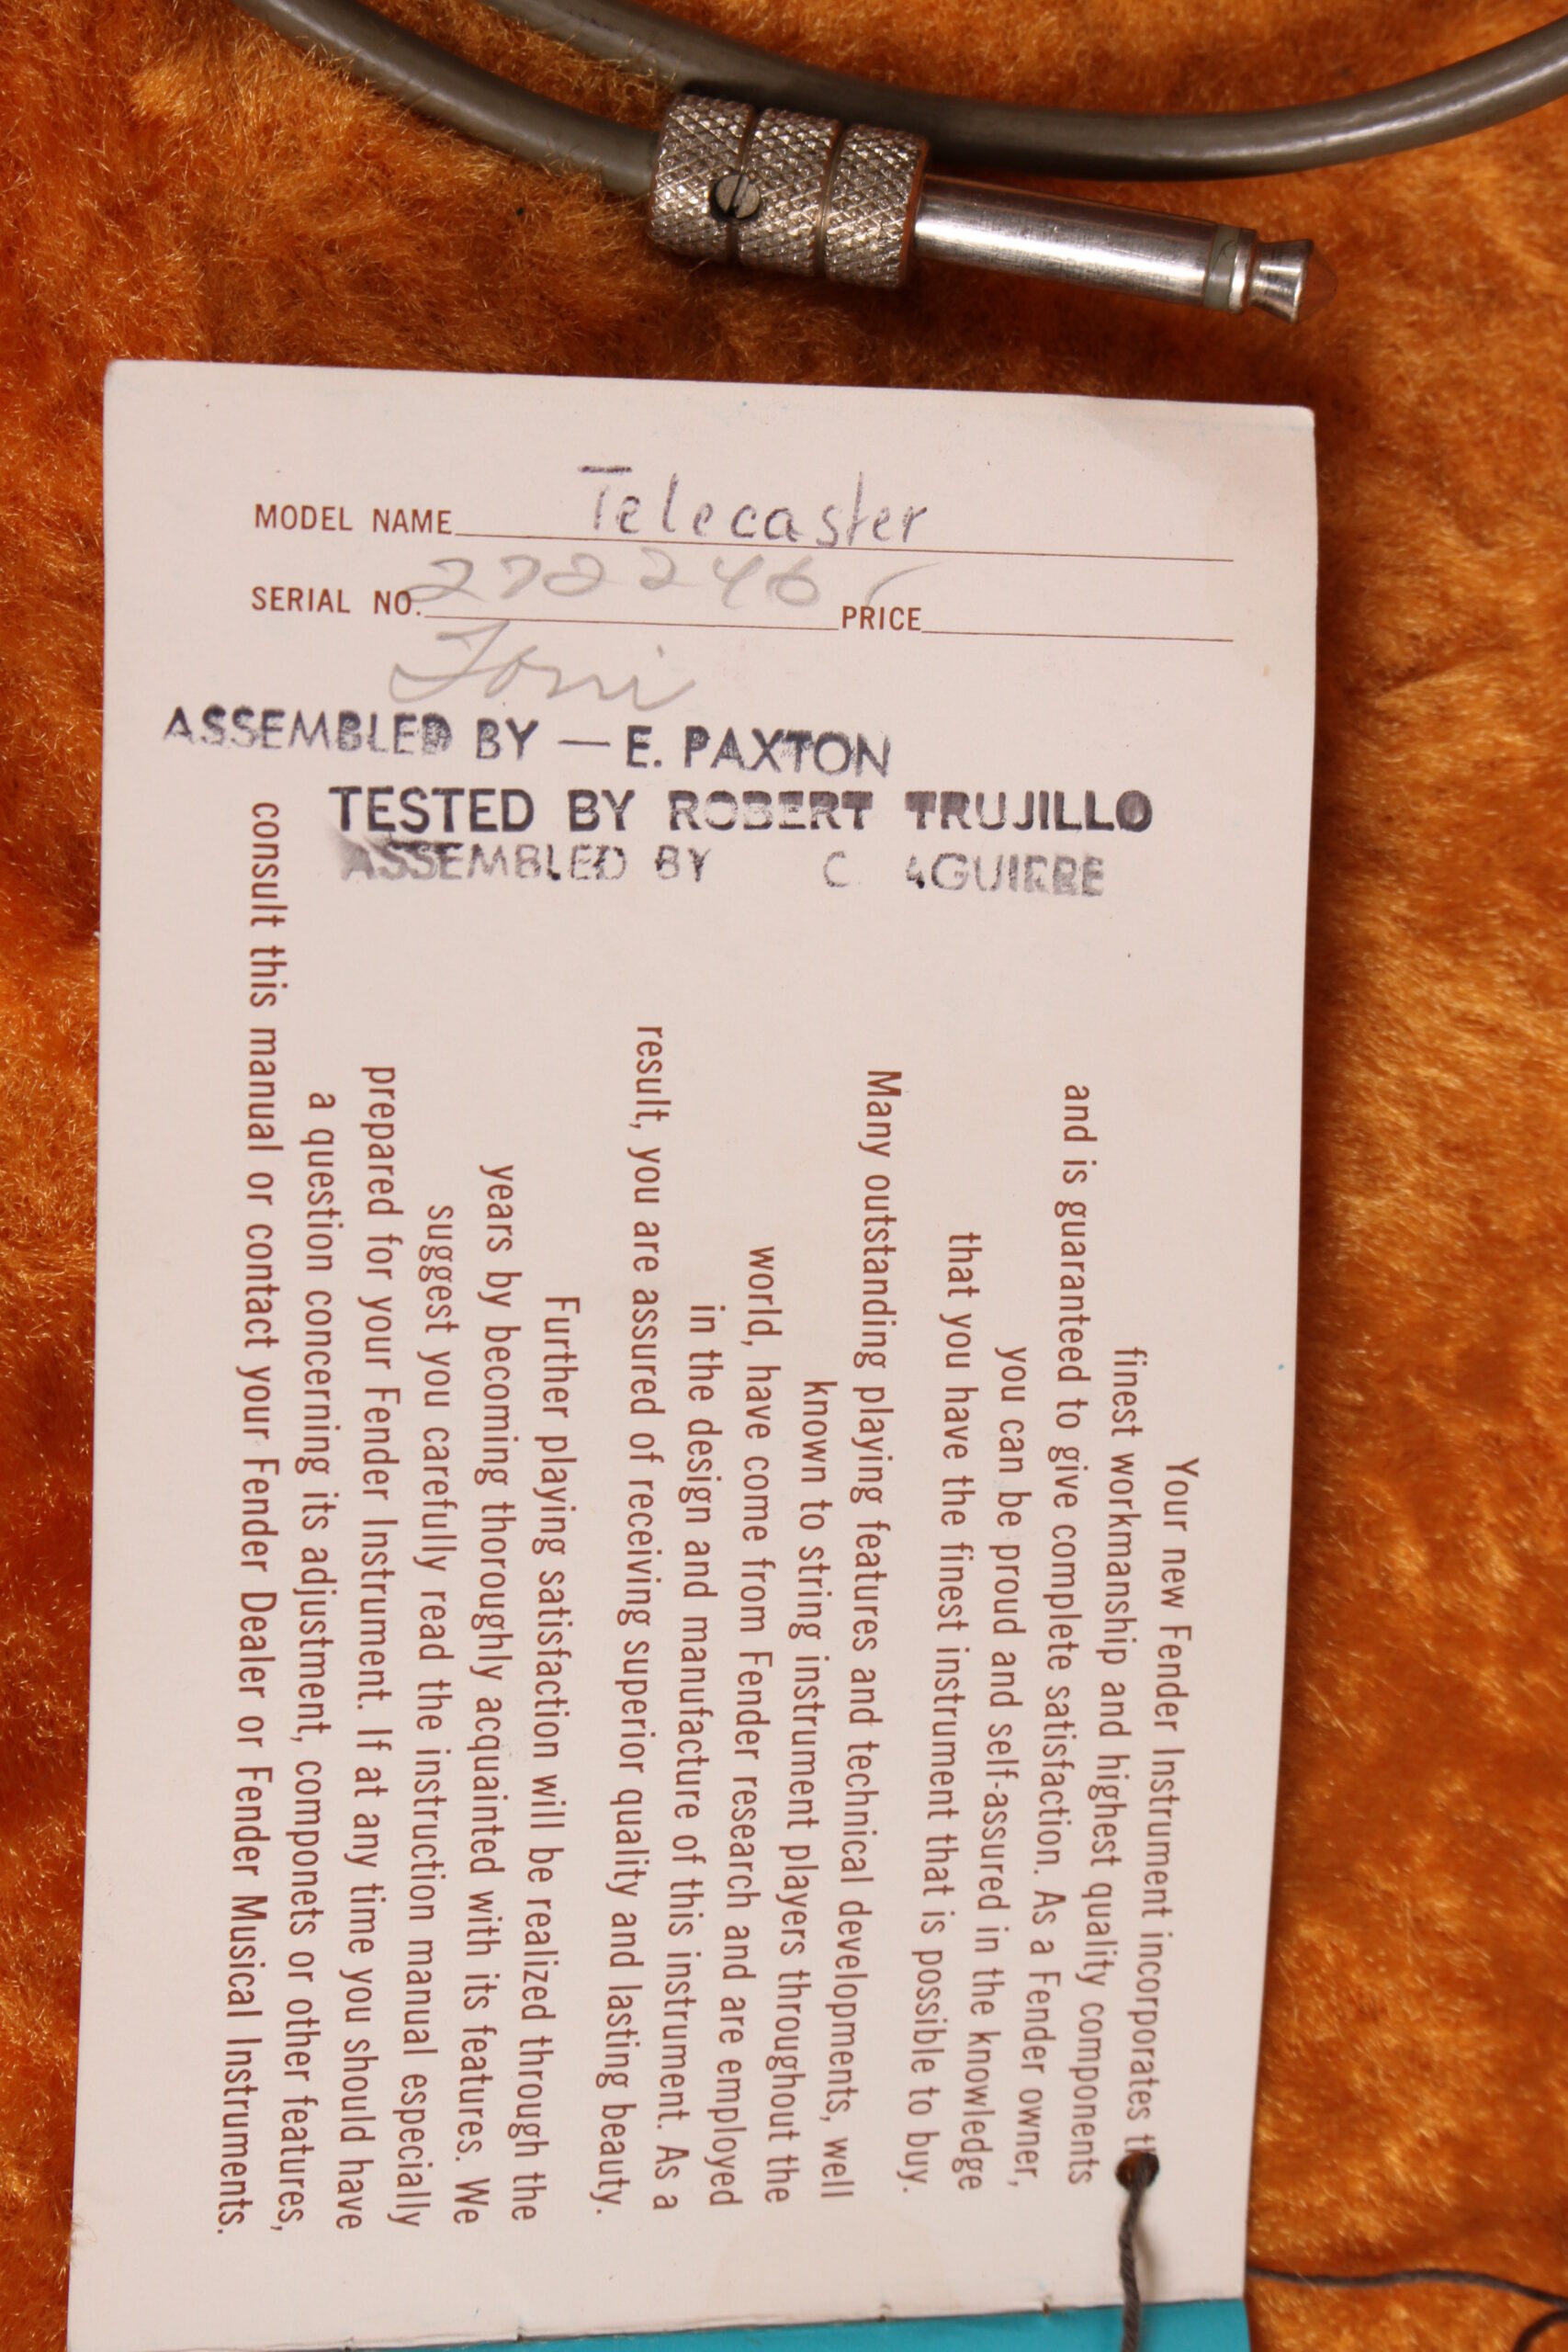 MODEL NAME Telecaster
SERIAL NO. 272246 PRICE
Toni
ASSEMBLED BY — E. PAXTON
TESTED BY ROBERT TRUJILLO
ASSEMBLED BY C. AGUIRRE
Your new Fender Instrument incorporates
finest workmanship and highest quality components
and is guaranteed to give complete satisfaction. As a Fender owner,
you can be proud and self-assured in the knowledge
that you have the finest instrument that is possible to buy.
Many outstanding playing features and technical developments, well
known to string instrument players throughout the
world, have come from Fender research and are employed
in the design and manufacture of this instrument. As a
result, you are assured of receiving superior quality and lasting beauty.
Further playing satisfaction will be realized through the
years by becoming thoroughly acquainted with its features. We
suggest you carefully read the instruction manual especially
prepared for your Fender Instrument. If at any time you should have
a question concerning its adjustment, componets or other features,
consult this manual or contact your Fender Dealer or Fender Musical Instruments.